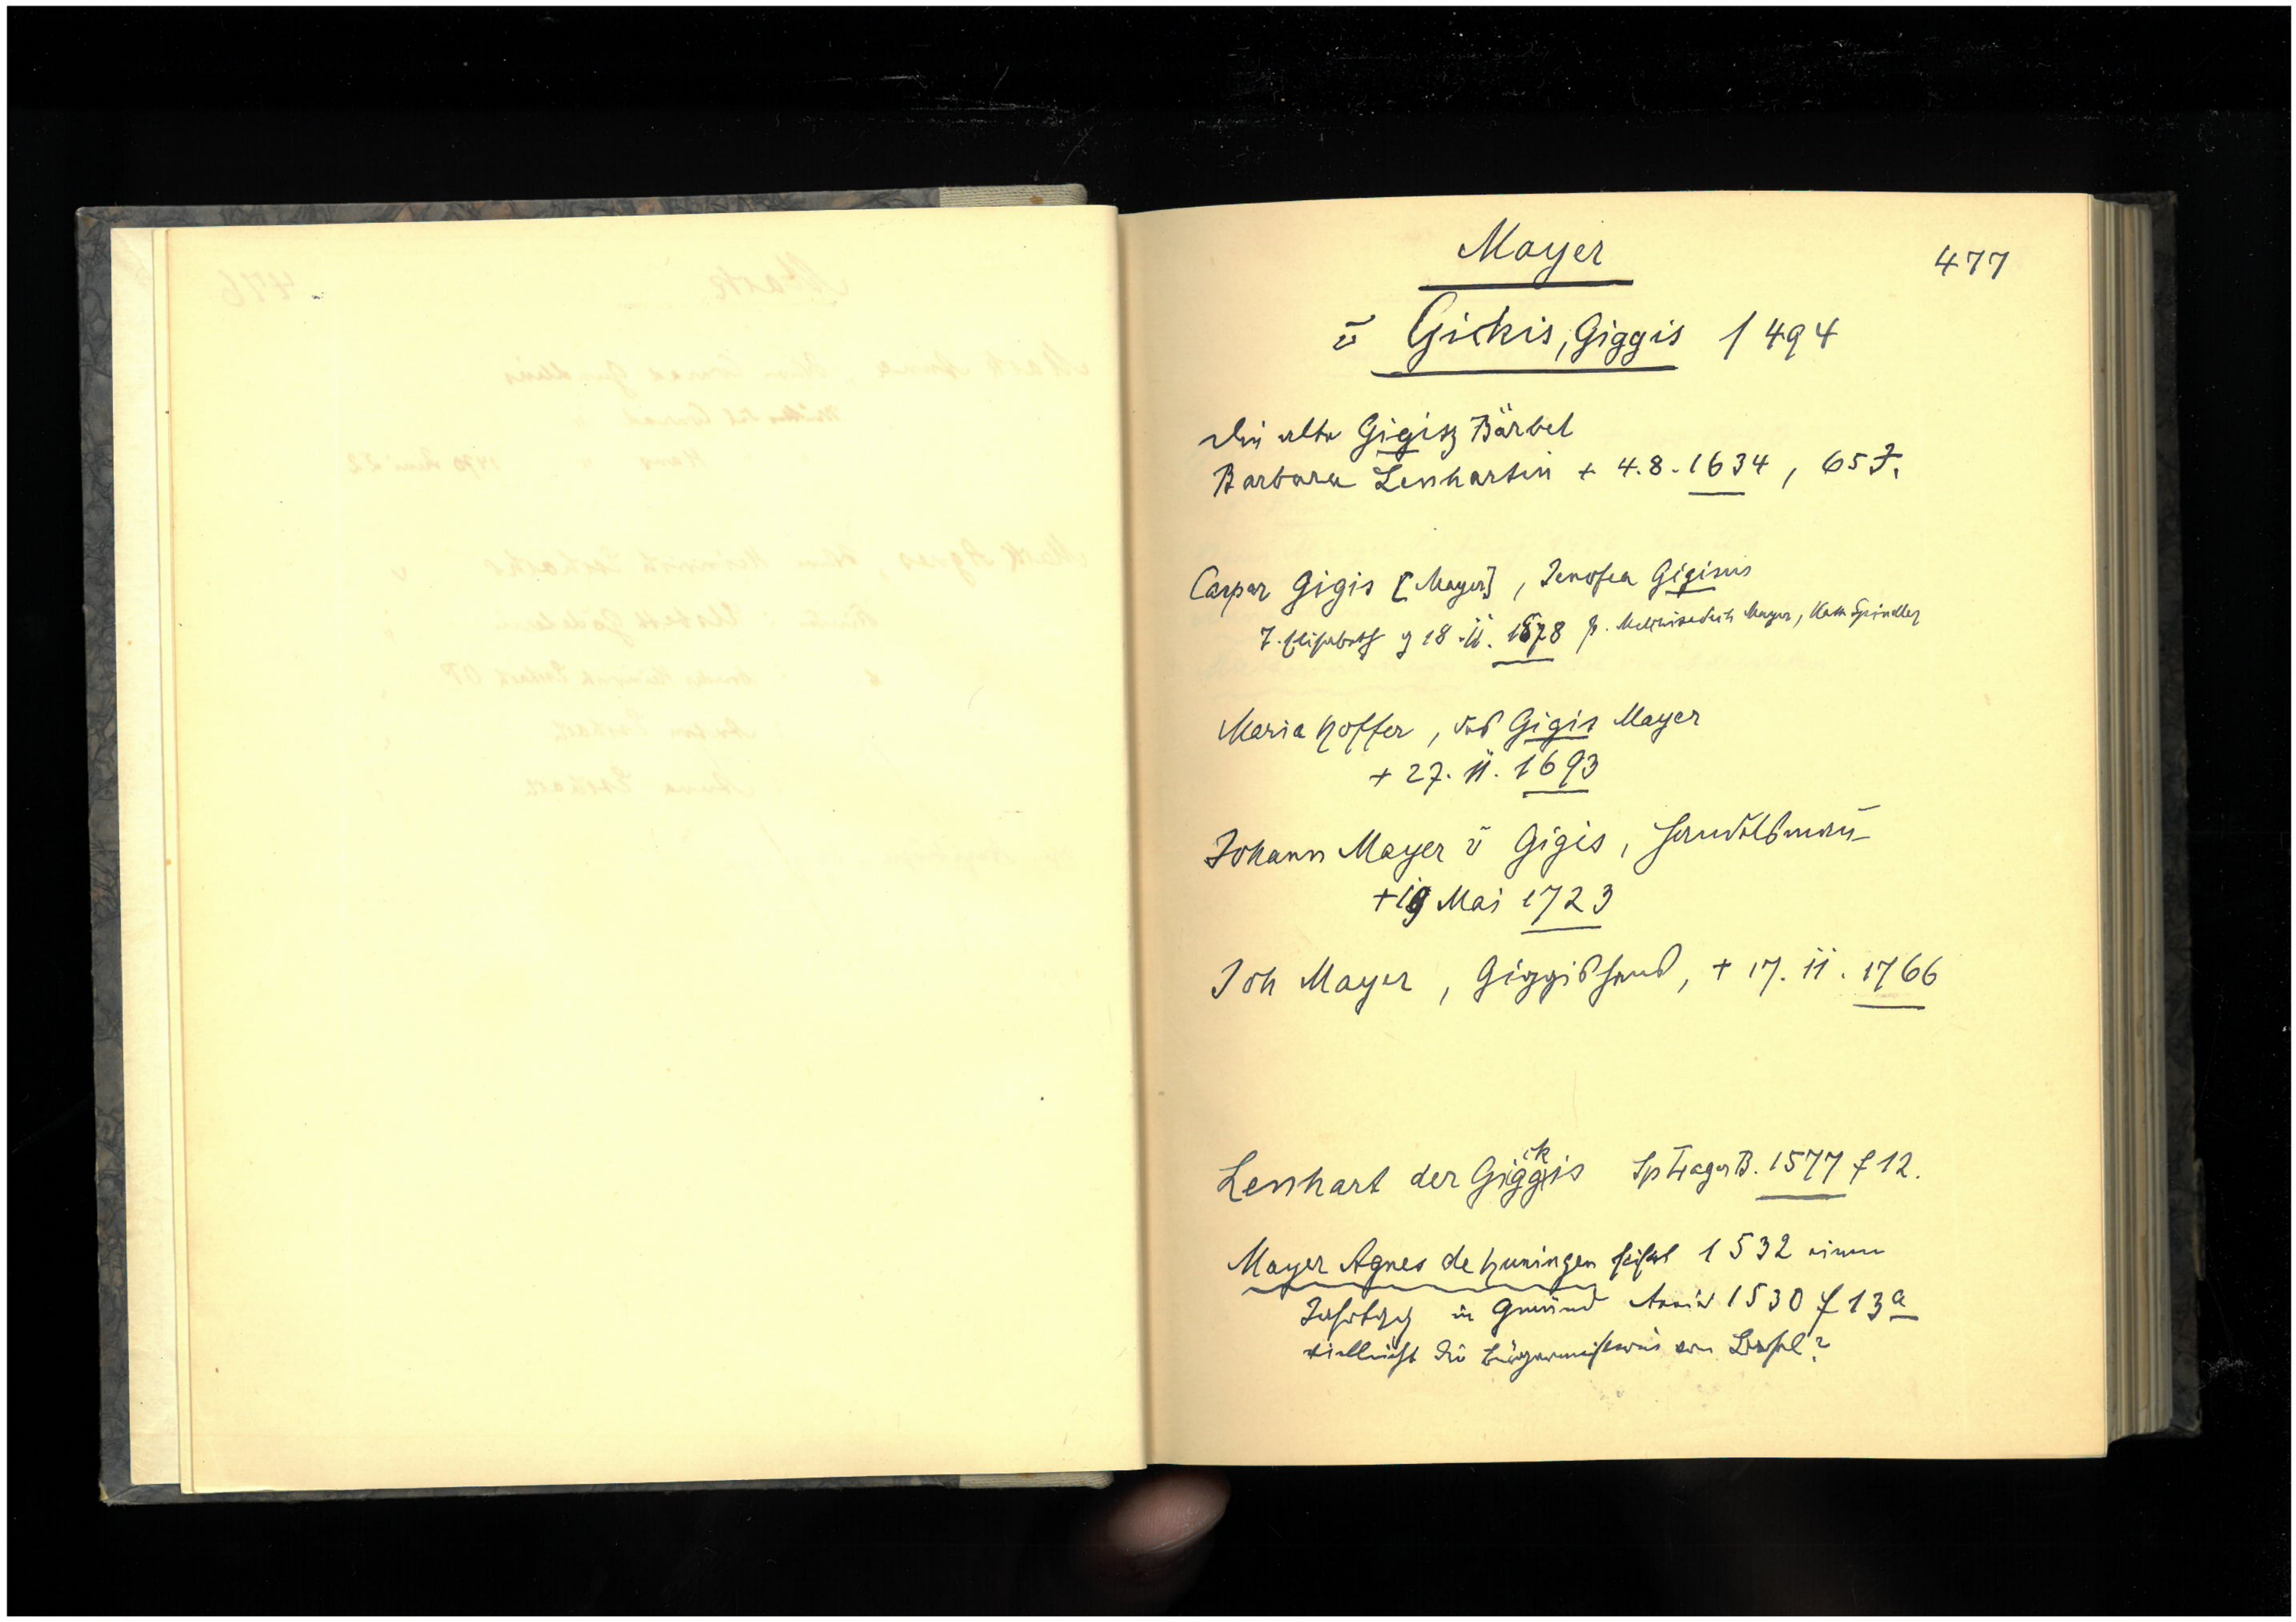 Mayer
477
ṽ Gickis, Giggis 1494
Die alte Gigisz Bärbel
Barbara Lenhartin + 4.8.1634, 65 J.
Caspar Gigis [Mayer], Jenofea Gigisin
T. Elisabeth g 18.11.1678 p. Melchisedech Mayer, Kath Spindler
Maria Hoffer, vid Gigis Mayer
+ 27. 11. 1693
Johann Mayer ṽ Gigis, Handelsmañ
+ 19 Mai 1723
Joh Mayer, Giggishans, + 17. 11. 1766
ck
Lenhart der Giggis Sp LagerB. 1577 f 12.
Mayer Agnes de Huningen stiftet 1532 einen
Jahrtag in Gmünd 1530 f 13a
vielleicht die Bürgermeisterin von